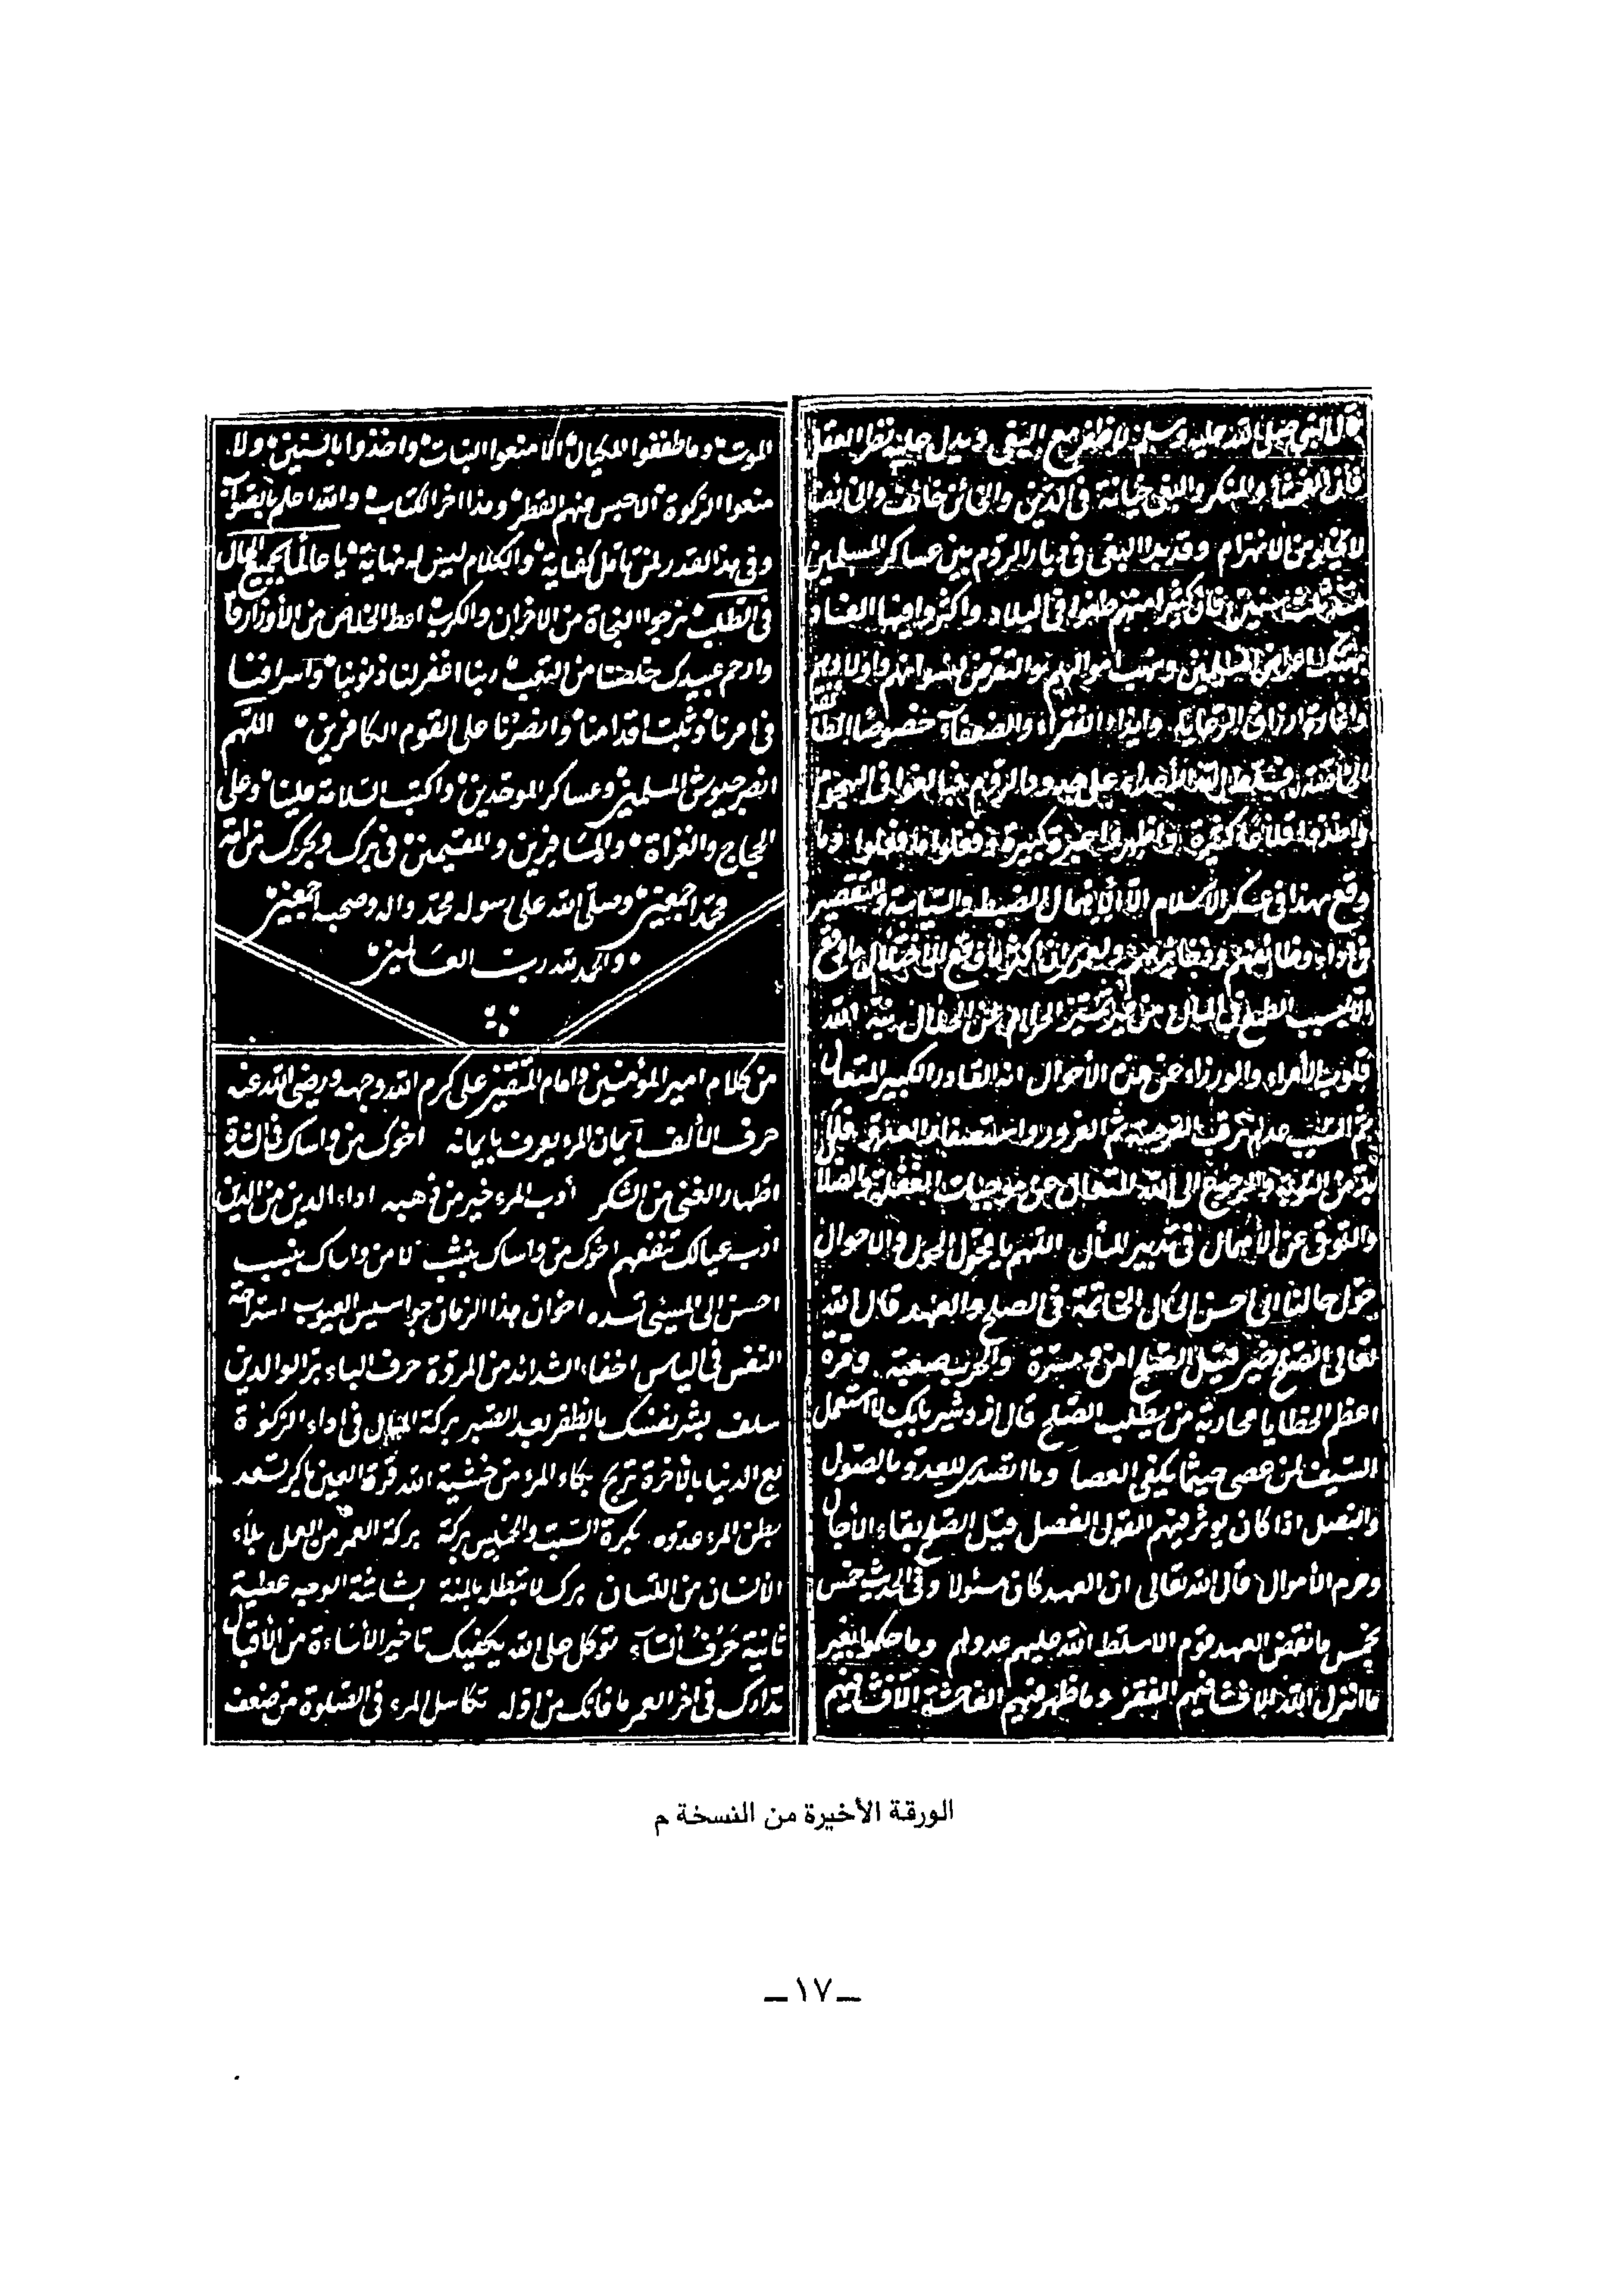 قال النبي صلى الله عليه وسلم لا ظفر مع البغى ويدل عليه نظر العقل
فان الفحشا والمنكر والبغى خيانة فى الدين والخائن خائف والخائف
لا يخلو من الانهزام وقد بدا البغى فى ديار الروم بين عساكر المسلمين
سنين فان كثيرا منهم طغوا فى البلاد واكثروا فيها الفساد
المسلمين ونهب اموالهم والتعرض لنسوانهم واولادهم
وغارة ارزاق الرعايا وايذاء الفقراء والضعفاء خصوصا الطائفة
فسلط الله الأعداء على حدود الروم فبالغوا فى الهجوم
واخذوا قلاعا كثيرة واظهروا كبيرة وفعلوا ما فعلوا وما
وقع هذا فى عسكر الاسلام الا لاهمال الضبط والسياسة والتقصير
فى اداء وظائفهم اكثر ما وقع الاختلال ما وقع
الا بسبب الطمع فى المال من غير تمييز الحرام عن الحلال نبه الله
قلوب الأمراء والوزراء عن هذه الأحوال انه القادر الكبير المتعال
ثم السبب عدم ترقب الفرصة ثم الغرور واستضعاف العدو فلا
بد من التوبة والرجوع الى الله المتعال عن موجبات الغفلة والضلال
والتوقى عن الاهمال فى تدبير المأل اللهم يا محول الحول والاحوال
حول حالنا الى احسن الحال الخاتمة فى الصلح والعهد قال الله
تعالى الصلح خير قيل الصلح امن ومسرة والحرب صعبة ومرة
اعظم الخطايا محاربة من يطلب الصلح قال ازدشير بابك لا استعمل
السيف لمن عصى حيثما يكفى العصا وما اتصدى للعدو بالصول
والنصل اذا كان يوثر فيهم القول الفصل قيل الصلح بقاء الآجال
وحرم الأموال قال الله تعالى ان العهد كان مسئولا وفى الحديث خمس
بخمس ما نقض العهد قوم الا سلط الله عليهم عدوهم وما حكموا بغير
ما انزل الله الا فشا فيهم الفقر وما ظهر فيهم الفاحشة الا فشا فيهم
الموت وما طففوا المكيال الا منعوا النبات واخذوا بالسنين ولا
منعوا الزكوة الا حبس منهم القطر وهذا اخر الكتاب والله اعلم بالصواب
وفى هذا القدر لمن تأمل كفاية والكلام ليس له نهاية يا عالما بجميع الحال
فى الطلب نرجوا النجاة من الاحزان والكرب اعط الخلاص من الأوزار
وارحم عبيدك خلصنا من التعب ربنا اغفر لنا ذنوبنا واسرافنا
فى امرنا وثبت اقدامنا وانصرنا على القوم الكافرين اللهم
انصر جيوش المسلمين وعساكر الموحدين واكتب السلامة علينا وعلى
الحجاج والغزاة والمسافرين والمقيمين فى برك وبحرك من امة
محمد اجمعين وصلى الله على رسوله محمد واله وصحبه اجمعين
والحمد لله رب العالمين
من كلام امير المؤمنين وامام المتقين على كرم الله وجهه ورضى الله عنه
حرف الألف ايمان المرء يعرف بايمانه اخوك من واساك فى الشدة
اظهار الغنى من الشكر أدب المرء خير من ذهبه اداء الدين من الدين
ادب عيالك تنفعهم اخوك من واساك بنشب لا من واساك بنسب
احسن الى المسئى تسده اخوان هذا الزمان جواسيس العيوب استراحة
النفس فى الياس اخفاء الشدائد من المروة حرف الباء بر الوالدين
سلف بشر نفسك بالظفر بعد الصبر بركة المال فى اداء الزكوة
بع الدنيا بالأخرة تربح بكاء المرء من خشية الله قرة العين باكر تسعد
بطن المرء عدوه بكرة السبت والخميس بركة بركة العمر من العمل بلاء
الانسان من اللسان برك لا تبطل بالمنة بشاشة الوجه عطية
ثانية حرف التاء توكل على الله يكفيك تاخير الأساءة من الأقبال
تدارك فى اخر العمر ما فاتك من اوله تكاسل المرء فى الصلوة من ضعف
الورقة الأخيرة من النسخة م
ــ ١٧ ــ